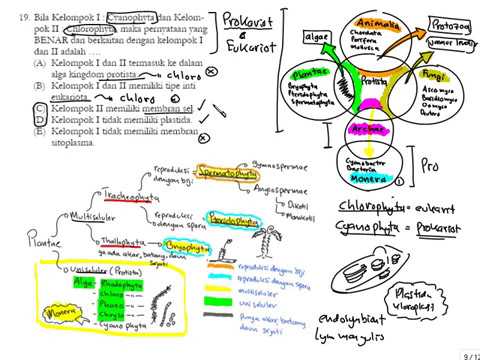 19. Bila Kelompok I : Cyanophyta dan Kelom-
pok II : Chlorophyta, maka pernyataan yang
BENAR dan berkaitan dengan kelompok I
dan II adalah ....
(A) Kelompok I dan II termasuk ke dalam
alga kingdom protista. → chloro
(B) Kelompok I dan II memiliki tipe inti
eukariota. → chloro
(C) Kelompok II memiliki membran sel.
(D) Kelompok I tidak memiliki plastida.
(E) Kelompok I tidak memiliki membran
sitoplasma.
Prokariot
&
Eukariot
algae
Animalia
Chordata
Porifera
Mollusca
Protozoa
Plantae
Bryophyta
Pteridophyta
Spermatophyta
Protista
Fungi
Ascomyco
Basidiomyco
Oomyco
Archae
Cyanobacter
Bacteria
Monera
Pro
Chlorophyta = eukariot
Cyanophyta = prokariot
Plastida
kloroplas
endosymbiont
Lynn margulis
Plantae
Multiseluler
Tracheophyta
reproduksi
dengan biji
Spermatophyta
Gymnospermae
Angiospermae
Dikotil
Monokotil
reproduksi
dengan spora
Pteridophyta
Thallophyta
Bryophyta
akar, batang, daun
sejati
Uniseluler (Protista)
Alga
Rhodophyta
Chloro
Phaeo
Chryso
Cyanophyta
Monera
reproduksi dengan biji
reproduksi dengan spora
multiseluler
uniseluler
Punya akar, batang
daun sejati
9 / 12